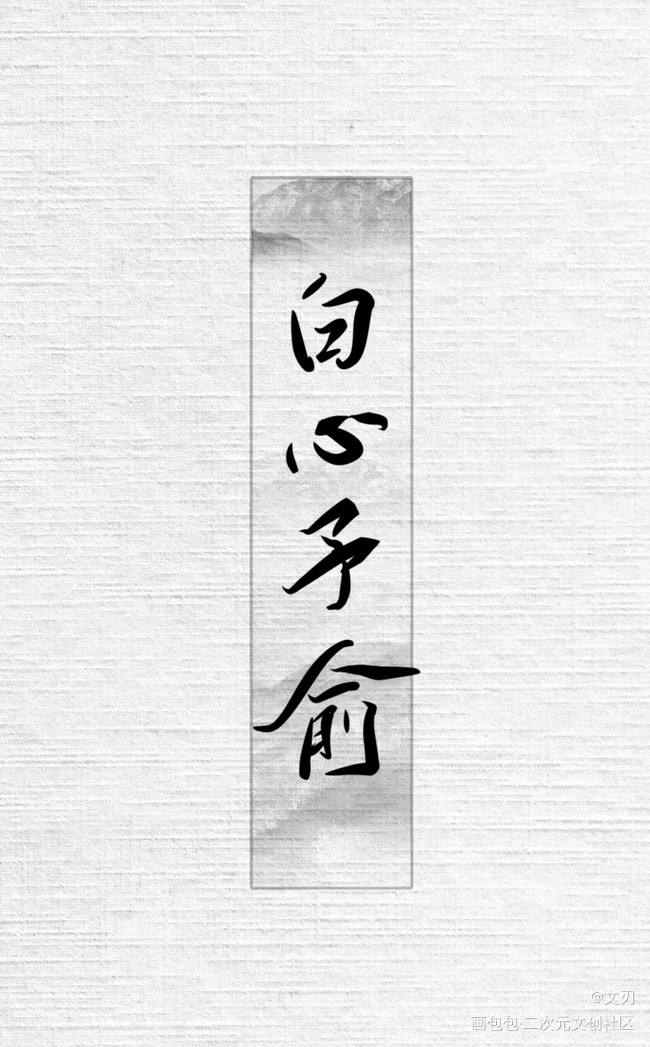 白心予俞
@文刃
画包包·二次元文创社区